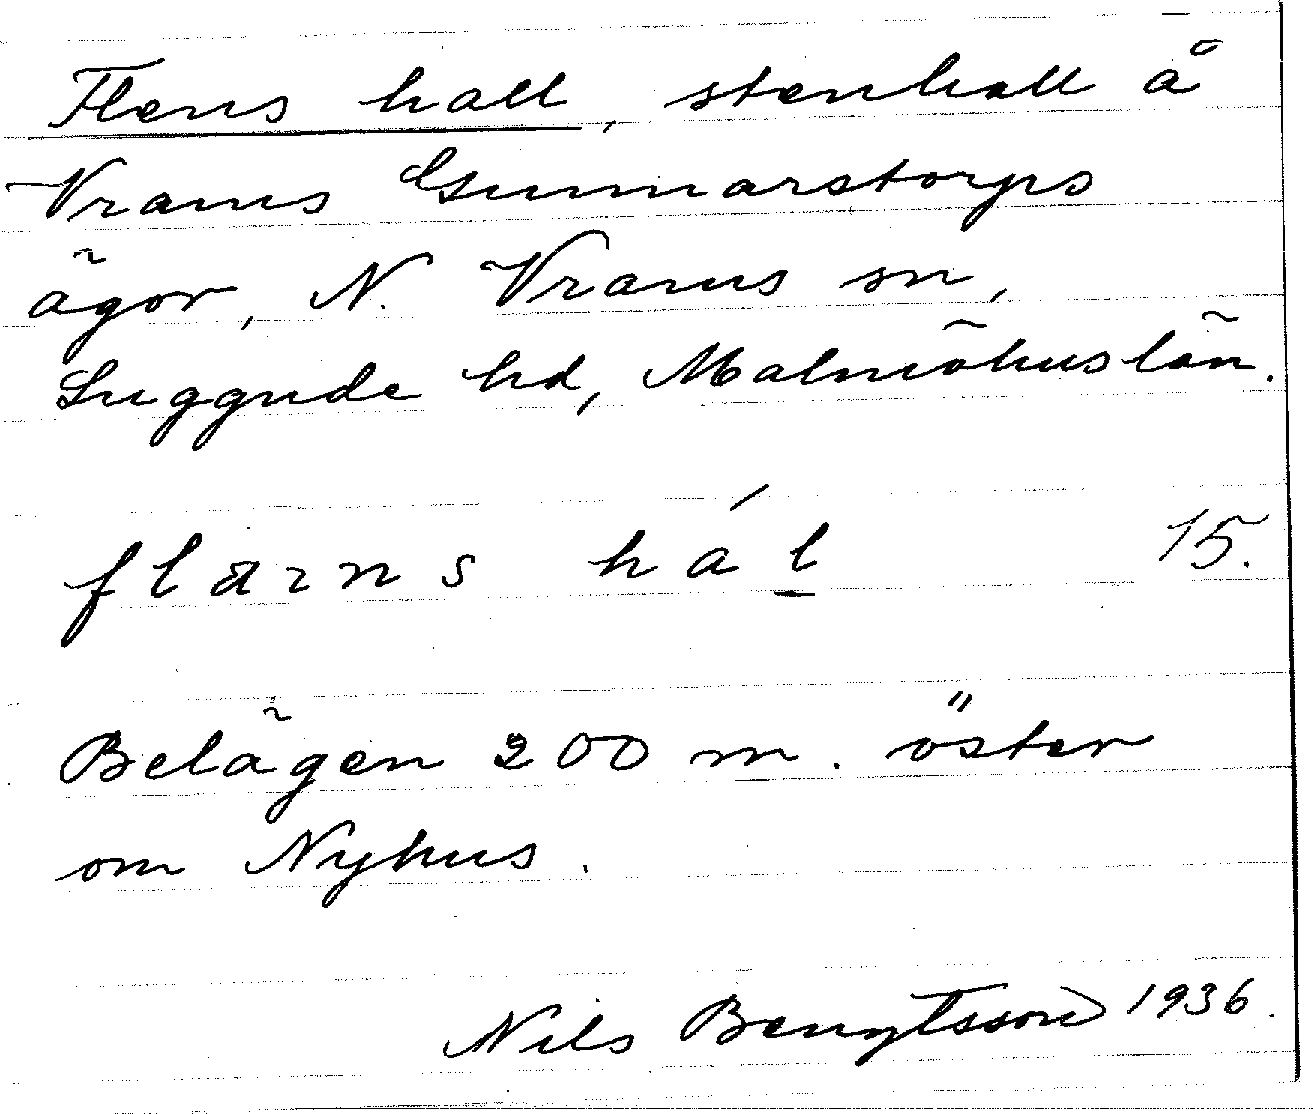 Flens hall, stenhall å
Vrams Gunnarstorps
ägor, N. Vrams sn,
Luggude hd, Malmöhus län.
flæɪns hál̲ 15.
Belägen 200 m. öster
om Nyhus.
Nils Bengtsson 1936.